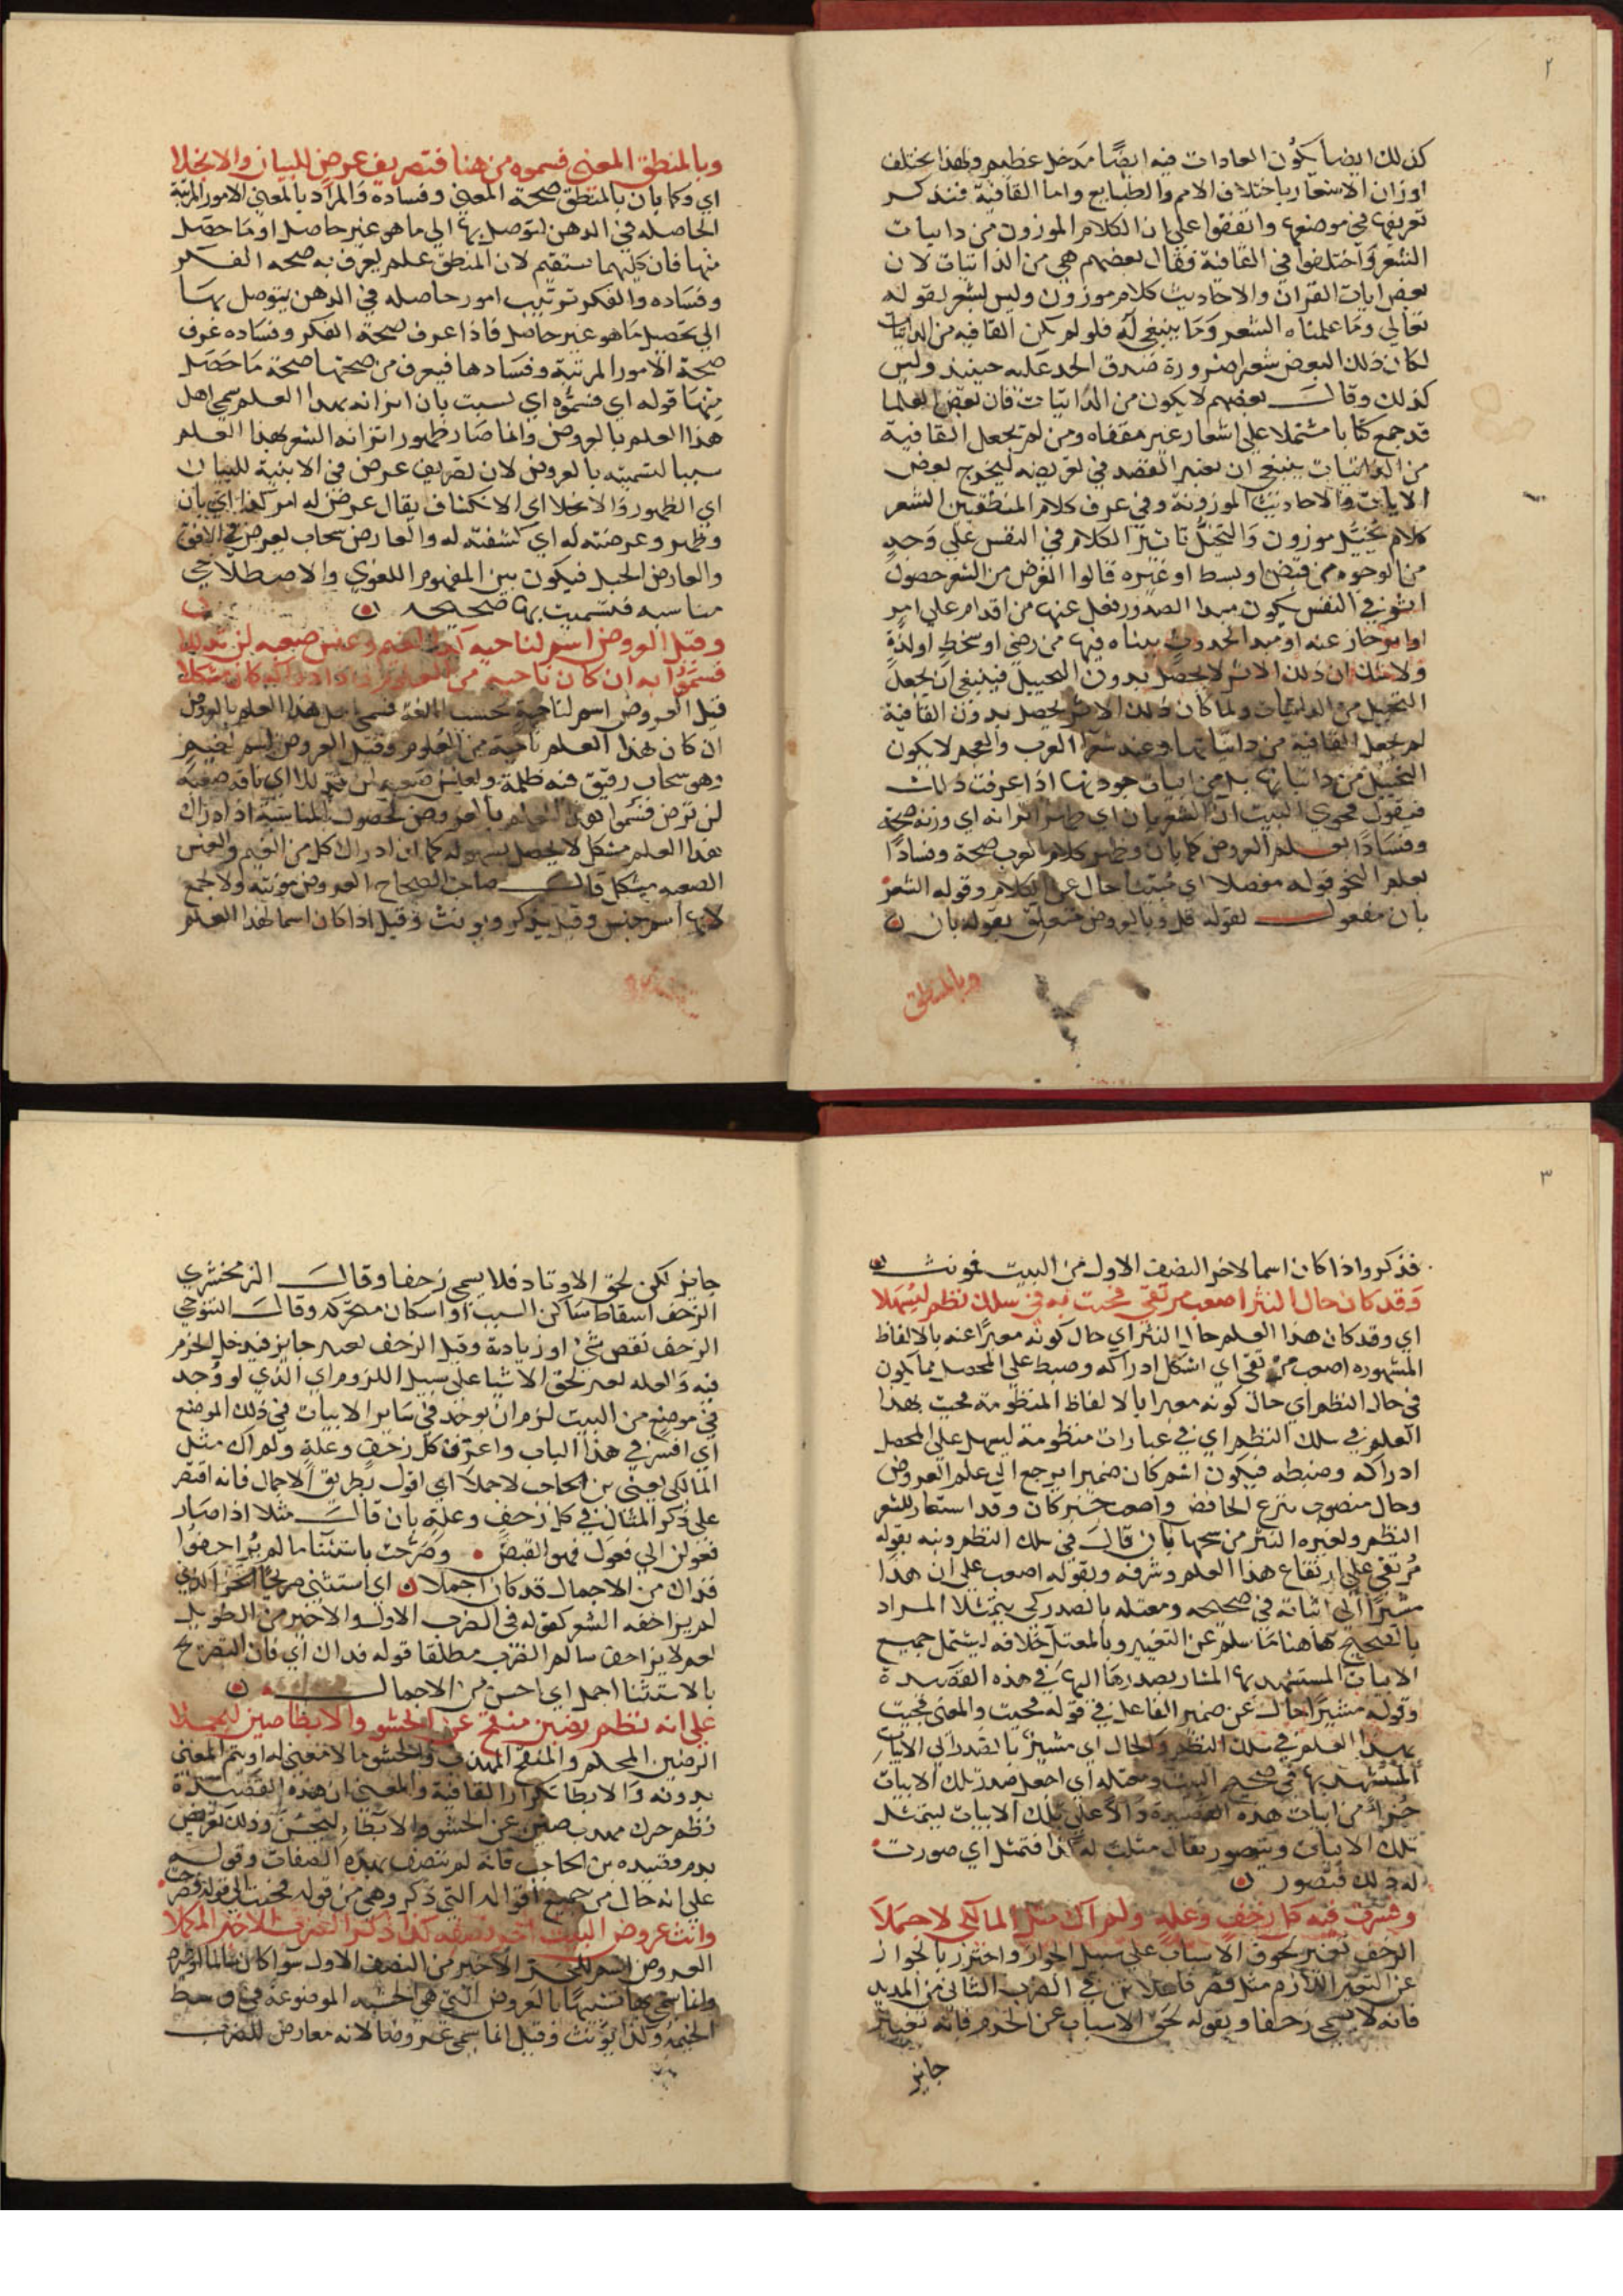 ٢
كذلك ايضا يكون العادات فيه ايضًا مدخل عظيم ولهذا يختلف
اوزان الاشعار باختلاف الامم والطبايع واما القافية فنذكر
تعريفها في موضعها واتفقوا على ان الكلام الموزون من ذاتيات
الشعر واختلفوا في القافية فقال بعضهم هي من الذاتيات لان
بعض ايات القران والاحاديث كلام موزون وليس بشعر لقوله
تعالى وما علمناه الشعر وما ينبغي له فلو لم يكن القافية من الذاتيات
لكان ذلك البعض شعرا ضرورة صدق الحد عليه حينيذ وليس
كذلك وقال بعضهم لا يكون من الذاتيات فان بعض العلما
قد جمع كتابا مشتملا على اشعار غير مقفاه ومن لم يجعل القافية
من الذاتيات ينبغي ان يعتبر القصد في تعريفه ليخرج بعض
الايات والاحاديث الموزونة وفي عرف كلام المنطقيين الشعر
كلام مخيّل موزون والتخيّل تاثير الكلام في النفس على وجه
من الوجوه من قبض او بسط او غيره قالوا الغرض من الشعر حصول
اثر في النفس يكون مبدا لصدور فعل عنها من اقدام على امر
او احجاز عنه او مبدا لحدوث هيئات فيها من رضى او سخط او لذة
ولا شك ان ذلك الاثر لا يحصل بدون التخييل فينبغي ان يجعل
التخييل من الذاتيات ولما كان ذلك الاثر يحصل بدون القافية
لم يجعل القافية من ذاتياتها وعند شعرا العرب والعجم لا يكون
التخييل من ذاتياتها بل من اسباب جودتها اذا عرفت ذلك
فنقول فحوى البيت ان الشعر بان اي ظهر اتزانه اي وزنه صحة
وفسادًا بعلم العروض كما بان وظهر كلام العرب صحة وفسادًا
بعلم النحو قوله مفصلا اي مبيّنا حال عن الكلام وقوله الشعر
بان مفعول لقوله قل وبالعروض متعلق بقوله بان
وبالمنطق
وبالمنطق المعنى فسموه من هنا فتصريف عرض للبيان والانجلا
اي وكما بان بالمنطق صحة المعنى وفساده والمراد بالمعنى الامور المرتبة
الحاصله في الذهن ليتوصل بها الى ما هو غير حاصل او ما حصل
منها فان كليهما يستقيم لان المنطق علم يعرف به صحه الفكر
وفساده والفكر ترتيب امور حاصله في الذهن يتوصل بها
الى تحصيل ما هو غير حاصل فاذا عرف صحة الفكر وفساده عرف
صحة الامور المرتبة وفسادها فيعرف من صحتها صحة ما حصل
منها قوله اي فسموه اي لسبب بان اتزانه بهذا العلم سمى اهل
هذا العلم بالعروض وانما صار ظهور اتزانه الشعر بهذا العلم
سببا لتسميته بالعروض لان تصريف عرض في الابنية للبيان
اي الظهور والانجلا اي الانكشاف يقال عرض له امر كذا اي بان
وظهر وعرضته له اي كشفته له والعارض سحاب يعرض في الافق
والعارض الجبل فيكون بين المفهوم اللغوي والاصطلاحي
مناسبه فتسميت بها صحيحه
وقيل العروض اسم لناحيه كذا الغيم وعنس صعبه لن تذللا
فسموا به ان كان ناحيه من العلوم اذا ادراكه كان مشكلا
قيل العروض اسم لناحية بحسب اللغة فسمي اهل هذا العلم بالعروض
ان كان هذا العلم ناحية من العلوم وقيل العروض اسم لغيم
وهو سحاب رقيق فيه ظلمة ولعنس صعبه لن تذللا اي ناقه صعبة
لن ترض فسموا هذا العلم بالعروض لحصول المناسبة اذ ادراك
هذا العلم مشكل لا يحصل بسهوله كما ان ادراك كل من الغيم والعنس
الصعبه مشكل قال صاحب الصحاح العروض مونثه ولا تجمع
لانها اسم جنس وقيل يذكر ويونث وقيل اذا كان اسما لهذا العلم
٣
فذكر واذا كان اسما لاخر النصف الاول من البيت فمونث
وقد كان حال النثر اصعب مرتقى فجيت به في سلك نظم ليسهلا
اي وقد كان هذا العلم حال النثر اي حال كونه معبرًا عنه بالالفاظ
المشهوره اصعب مرتقى اي اشكل ادراكه وضبط على المحصل مما يكون
في حال النظم اي حال كونه معبرا بالالفاظ المنظومة فجيت بهذا
العلم في سلك النظم اي في عبارات منظومة ليسهل على المحصل
ادراكه وضبطه فيكون اسم كان ضميرا يرجع الى علم العروض
وحال منصوب بنزع الخافض واصعب خبر كان وقد استعار للشعر
النظم ولغيره النثر من سمها بان قال في سلك النظم ونبه بقوله
مرتقى على ارتفاع هذا العلم وشرفه وبقوله اصعب على ان هذا
مشيرًا الى اثباته في صحيحه ومعتله بالصدر كي يتمثلا المراد
بالصحيح هاهنا ما سلم عن التغيير وبالمعتل خلافه ليشمل جميع
الابيات المستشهد بها المشار بصدرها اليها في هذه القصيدة
وقوله مشيرًا حال عن ضمير الفاعل في قوله فجيت والمعنى فجيت
بهذا العلم في سلك النظم والحال اي مشيرًا بالصدر الى الابيات
المستشهد بها في صحيح البيت ومعتله اي اجعل صدر تلك الابيات
جزءًا من ابيات هذه القصيدة دالا على تلك الابيات ليتمثل
تلك الابيات ويتصور يقال مثلت له كذا فتمثل اي صورت
له ذلك فتصور
وعرفت فيه كل زحف وعلة ولم اك مثل المالكي لاجملا
الزحف تغيير لحوق الاسباب على سبيل الجواز واحترز بالجواز
عن التغير اللازم مثل قصر فاعلاتن في الضرب الثاني من المديد
فانه لا يسمى زحفا وبقوله لحق الاسباب عن الخرم فانه تغيير
جايز
جايز لكن لحق الاوتاد فلا يسمى زحفا وقال الزمخشري
الزحف اسقاط ساكن السبب او اسكان متحركه وقال التنوخي
الزحف نقص شيء او زيادة وقيل الزحف تغيير جايز فيدخل الخرم
فيه والعله تغيير لحق الاشيا على سبيل اللزوم اي الذي لو وجد
في موضع من البيت لزم ان يوجد في ساير الابيات في ذلك الموضع
اي افسر في هذا الباب واعرف كل زحف وعلة ولم اك مثل
المالكي يعني بن الحاجب لاجملا اي اقول بطريق الاجمال فانه اقتصر
على ذكر المثال في كل زحف وعلة بان قال مثلا اذا صار
فعولن الى فعول فهو القبض وصرحت باستثنا ما لم يزاحفوا
فذاك من الاجمال قد كان اجملا اي استثنى صريحًا الجزء الذي
لم يزاحفه الشعر كقوله في الضرب الاول والاخير من الطويل
نعم لا يزاحف سالم الضرب مطلقا قوله فذاك اي فان التصريح
بالاستثنا اجمل اي احسن من الاجمال
على انه نظم رصين منقح عن الحشو والايطا صين ليجملا
الرصين المحكم والمنقح المهذب والحشو ما لا معنى له او يتم المعنى
بدونه والايطا تكرار القافية والمعنى ان هذه القصيدة
نظم جزل مهذب صين عن الحشو والايطا ليحسن وذلك تعريض
بذم قصيده بن الحاجب فانه لم تتصف بهذه الصفات وقوله
على انه حال من جميع اقواله التي ذكر وهي من قوله فجيت الى قوله وصرحت
وانث عروض البيت اخر نصفه كذا ذكر الضرب الاخير المكملا
العروض اسم للجزء الاخير من النصف الاول سوا كان سالما او غيره
وانما سمي بها تشبيهًا بالعروض التي هي الخشبه الموضوعة في وسط
الخيمة ولذا يونث وقيل انما سمي عروضا لانه معارض للضرب